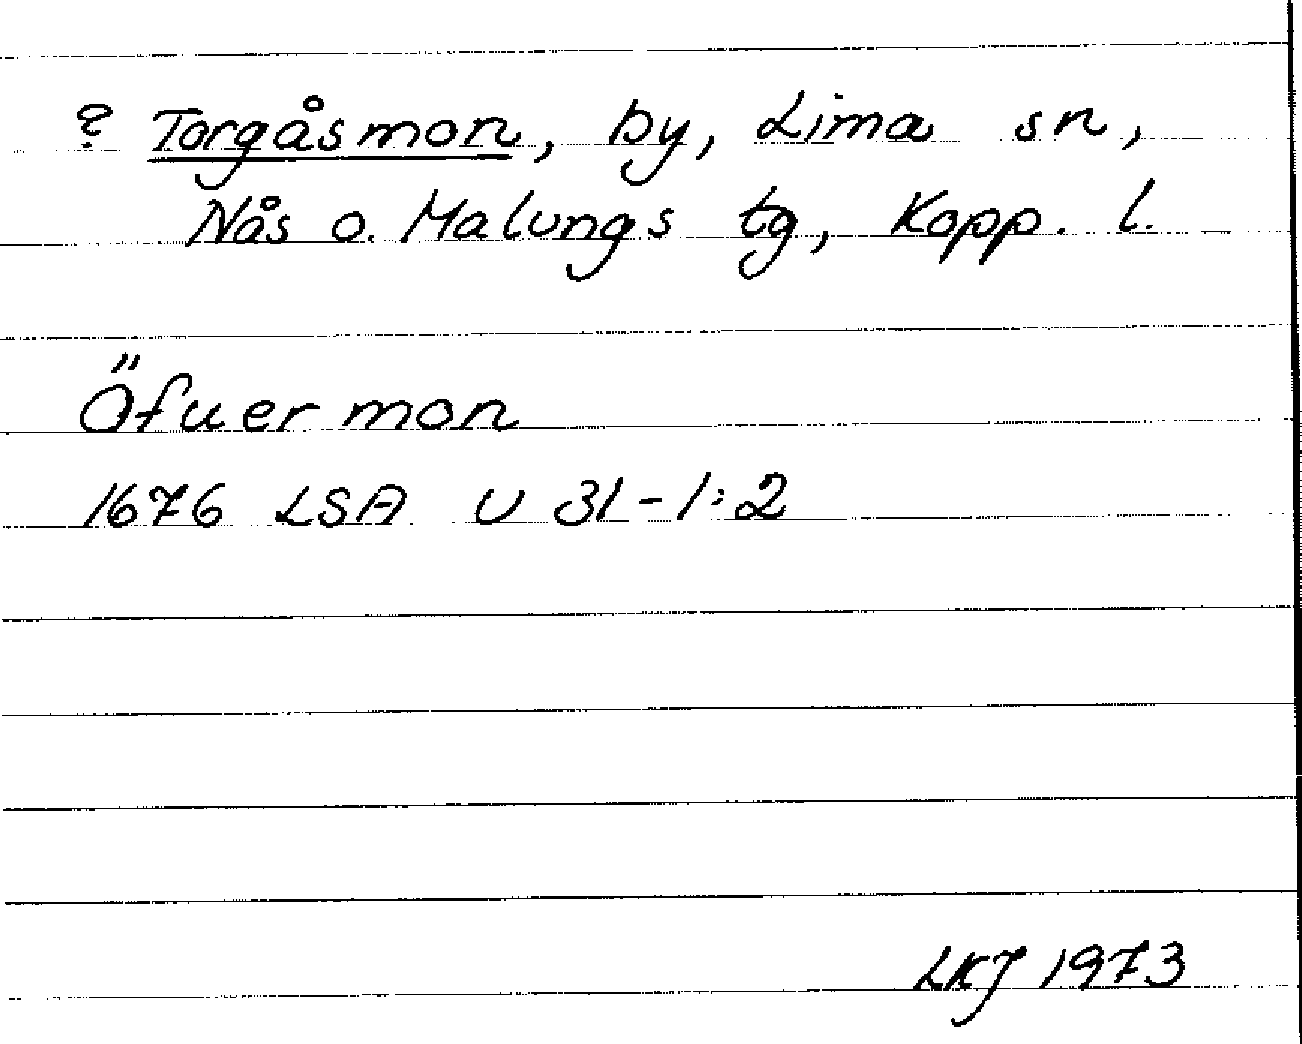 ? Torgåsmon, by, Lima sn,
Nås o. Malungs tg, Kopp. l.
Öfuer mon
1676 LSA U 31-1:2
LKJ 1973